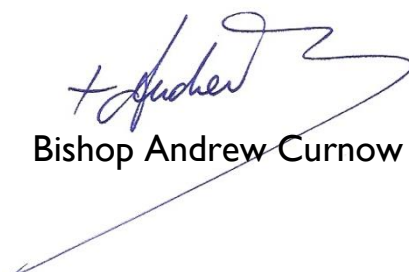 + Andrew
Bishop Andrew Curnow